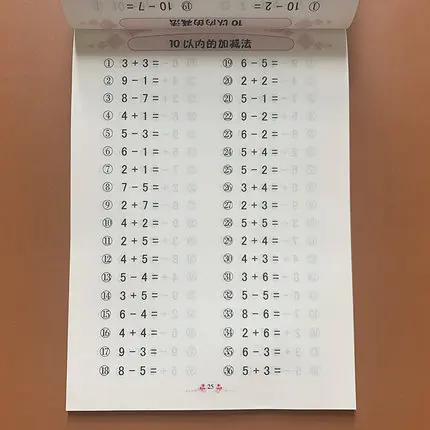 ① 10 - 7 = ⑲ 10 - 2 =
10 以内的减法
10 以内的加减法
① 3 + 3 = ⑲ 6 - 5 =
② 9 - 1 = ⑳ 2 + 2 =
③ 8 - 7 = ㉑ 5 - 1 =
④ 4 + 1 = ㉒ 9 - 2 =
⑤ 5 - 3 = ㉓ 6 - 2 =
⑥ 6 - 1 = ㉔ 5 + 4 =
⑦ 2 + 1 = ㉕ 5 - 2 =
⑧ 7 - 5 = ㉖ 3 + 4 =
⑨ 2 + 7 = ㉗ 2 + 3 =
⑩ 4 + 2 = ㉘ 5 + 5 =
⑪ 2 + 5 = ㉙ 2 + 4 =
⑫ 4 + 5 = ㉚ 4 + 3 =
⑬ 5 - 4 = ㉛ 3 + 6 =
⑭ 3 + 5 = ㉜ 5 - 5 =
⑮ 6 - 4 = ㉝ 8 - 6 =
⑯ 4 + 4 = ㉞ 2 + 6 =
⑰ 9 - 3 = ㉟ 6 - 3 =
⑱ 8 - 5 = ㊱ 5 + 3 =
25